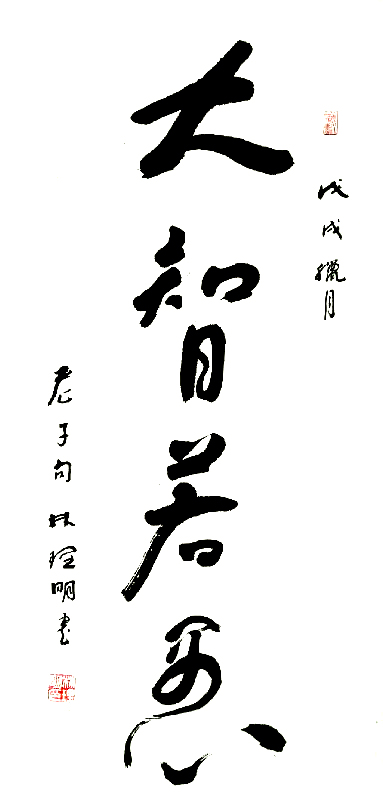 戊戌臘月
大智若愚
老子句 林理明書